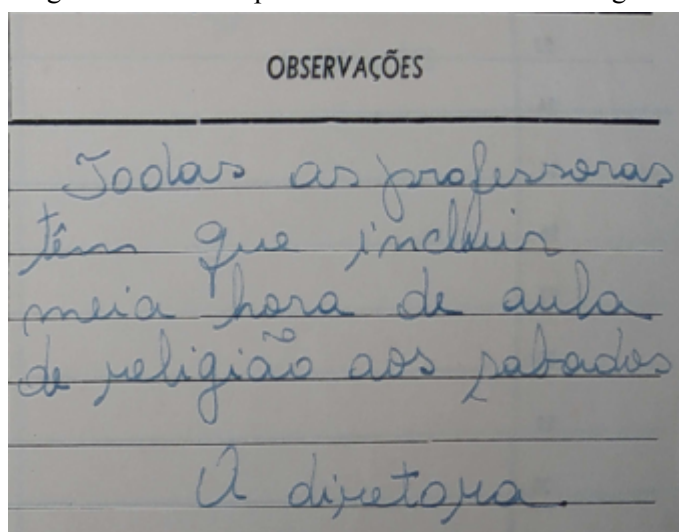 OBSERVAÇÕES
Todas as professoras
têm que incluir
meia hora de aula
de religião aos sabados
A diretora.